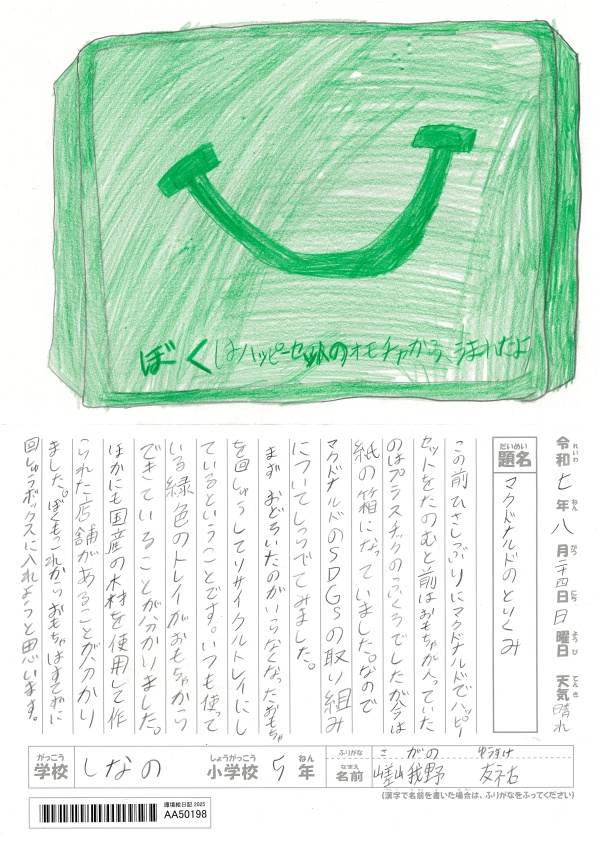 ぼくはハッピーセットのオモチャから、うまれたよ
令和七年八月二十四日日曜日 天気晴れ
れいわ ねん がつ にち ようび てんき
だいめい
題名 マクドナルドのとりくみ
この前ひさしぶりにマクドナルドでハッピー
セットをたのむと前はおもちゃが入っていた
のはプラスチックのふくろでしたが今は
紙の箱になっていました。なので
マクドナルドのSDGSの取り組み
についてしらべてみました。
まずおどろいたのがいらなくなったおもちゃ
を回しゅうしてリサイクルトレイにし
ているということです。いつも使って
いる緑色のトレイがおもちゃから
できていることが分かりました。
ほかにも国産の木材を使用して作
られた店舗があることが分かり
ました。ぼくもこれからおもちゃはすてずに
回しゅうボックスに入れようと思います。
がっこう しょうがっこう ねん
学校 しなの 小学校 5年
ふりがな さがの ゆうすけ
なまえ
名前 嵯峨野 友祐
(漢字で名前を書いた場合は、ふりがなをふってください)
環境絵日記 2025
AA50198